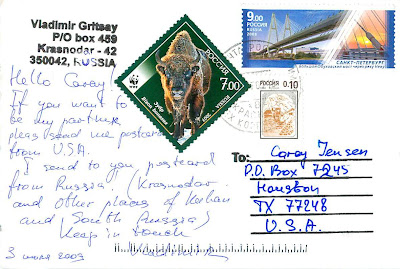 Vladimir Gritsay
P/O box 459
Krasnodar - 42
350042, RUSSIA
Hello Carey!
If you want to
be my partner
pleas send me postcard
from U.S.A.
I send to you postcard
from Russia. (Krasnodar
and other places of Kuban
and South Russia)
Keep in touch
3 июля 2009
WWF
РОССИЯ
7.00
Зубр
9.00
РОССИЯ
RUSSIA
САНКТ-ПЕТЕРБУРГ
0.10
To: Carey Jensen
P.O. Box 7245
Houston
TX 77248
U.S.A.